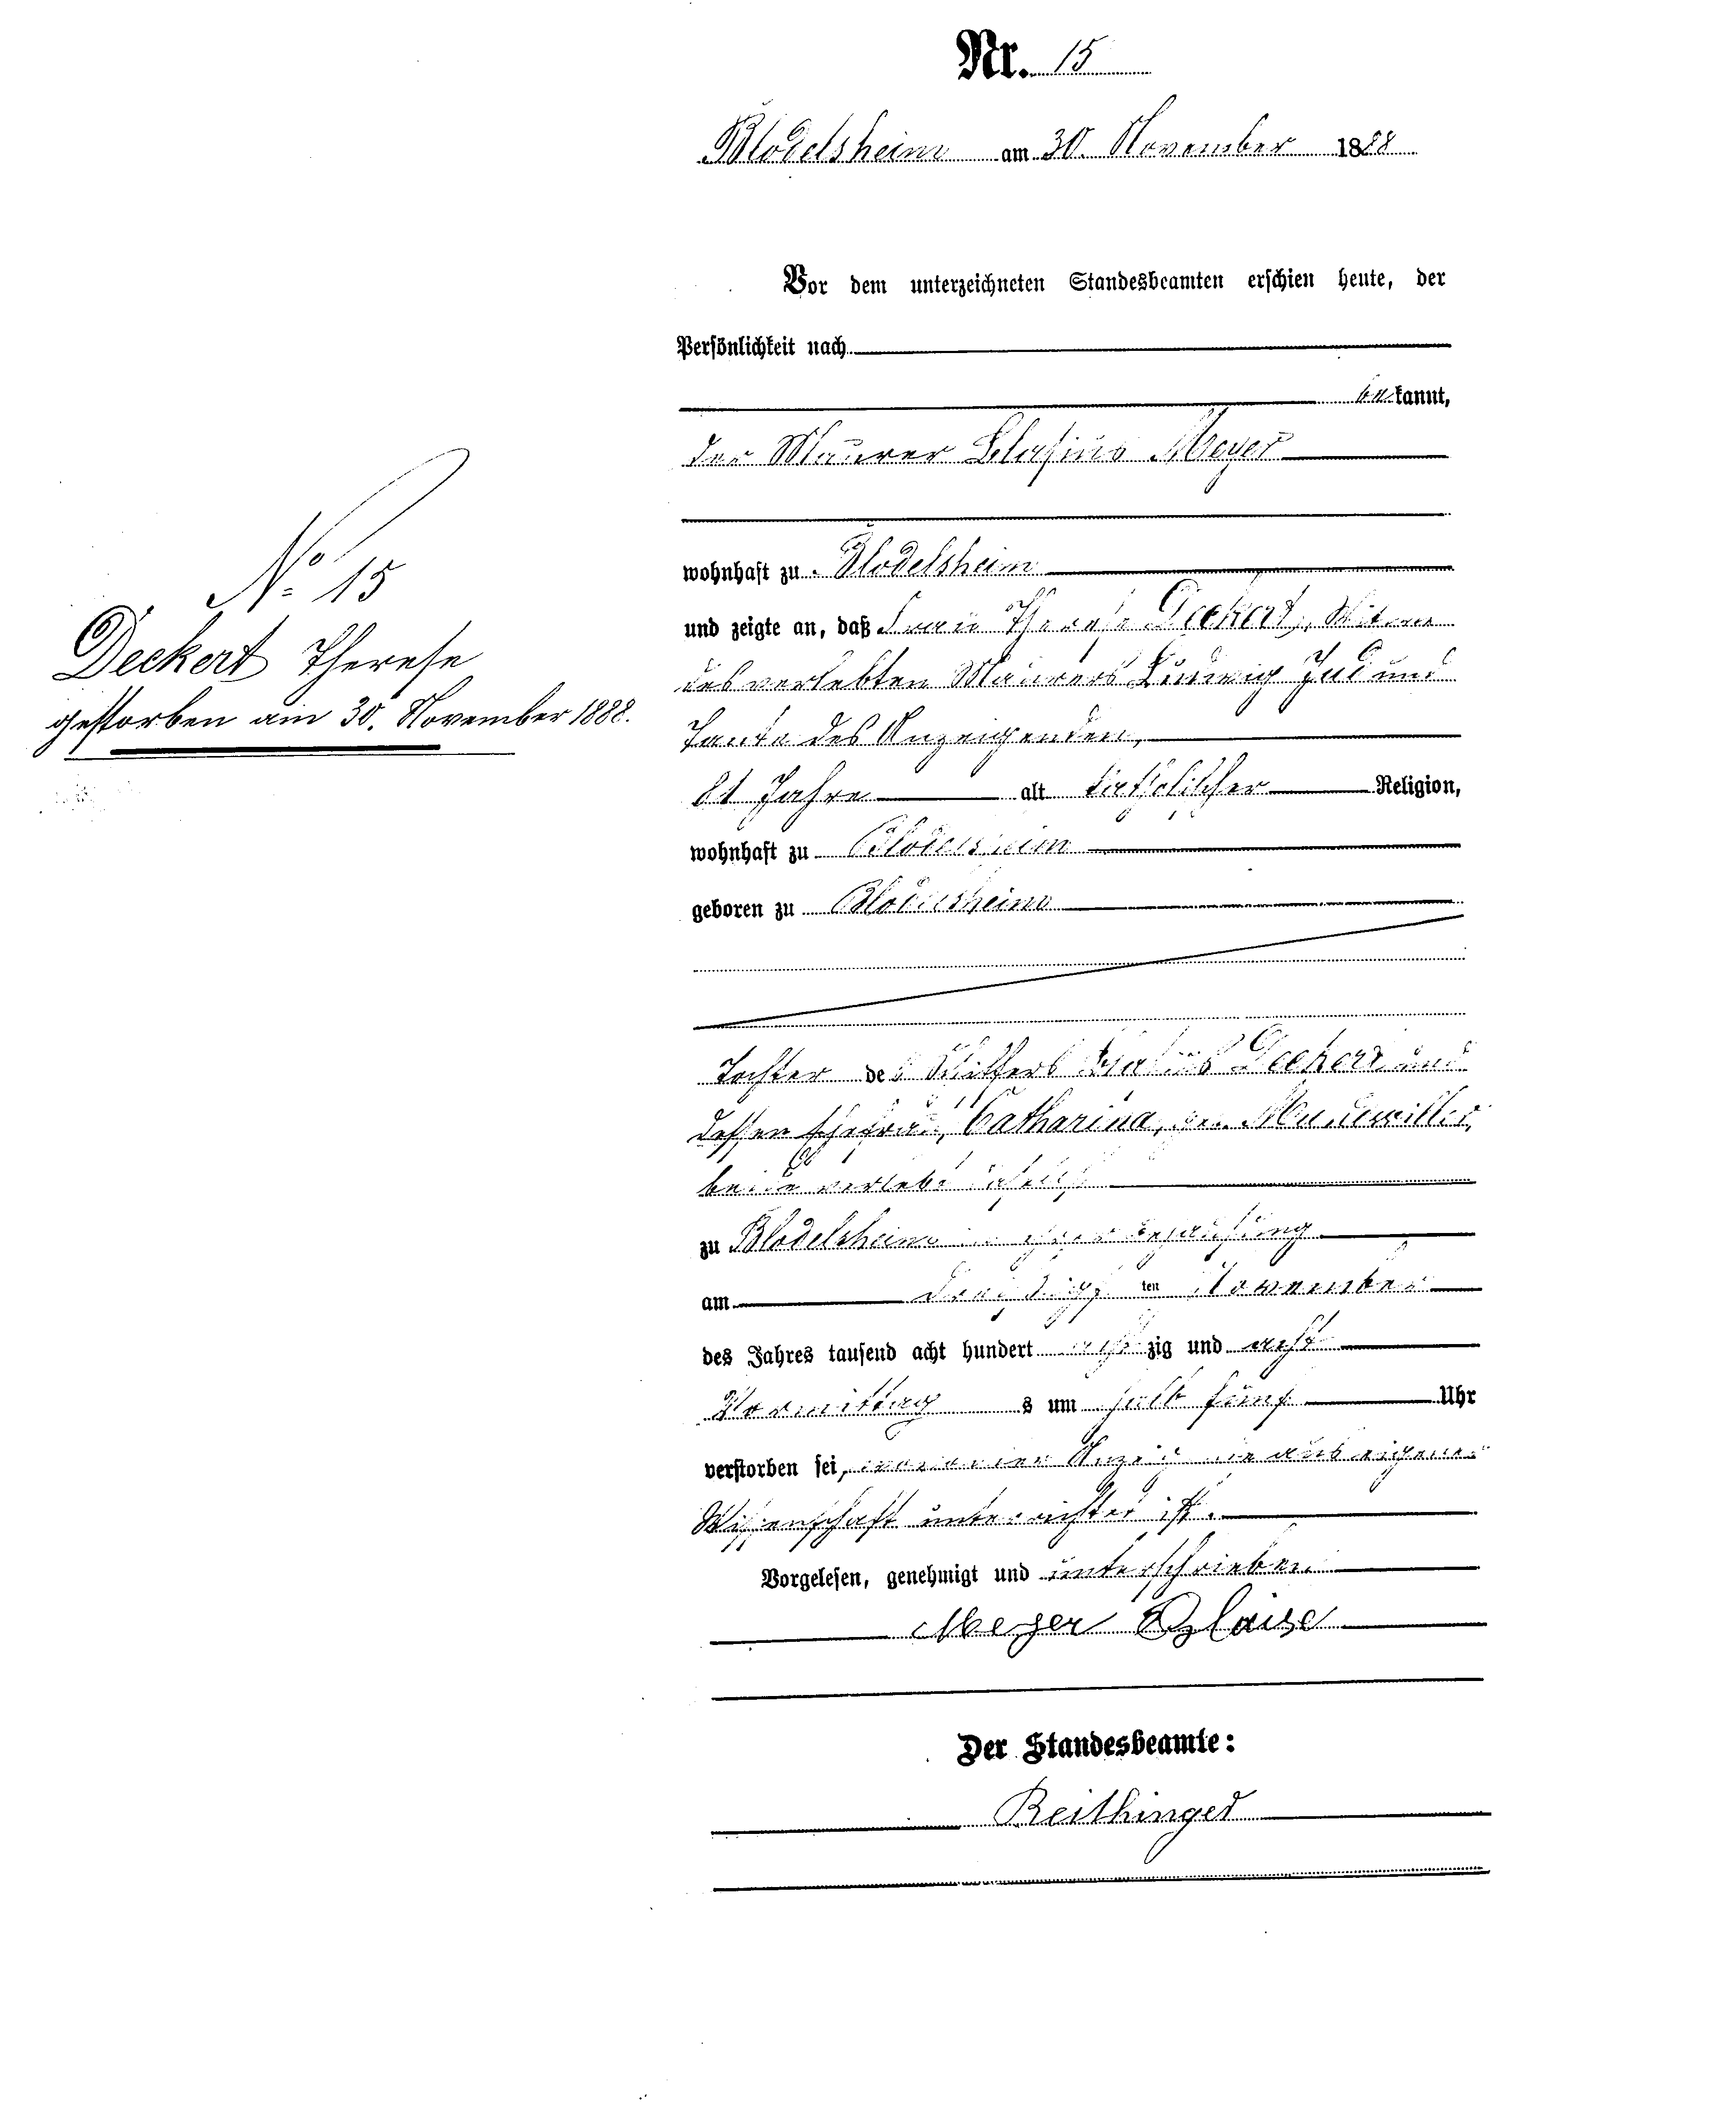 Nr. 15
Blodelsheim am 30. November 1888
Vor dem unterzeichneten Standesbeamten erschien heute, der
Persönlichkeit nach
bekannt,
der Maurer Blasius Meyer
wohnhaft zu Blodelsheim
und zeigte an, daß Frau Therese Deckert, Witwe
des verlebten Maurers Ludwig Jud und
Tante des Anzeigenden,
81 Jahre alt katholischer Religion,
wohnhaft zu Blodelsheim
geboren zu Blodelsheim
Tochter des Deckert und
dessen Ehefrau, Catharina, geb.
beide verlebt daselbst
zu Blodelsheim in ihrer Behausung
am dreißigsten November
des Jahres tausend acht hundert achtzig und acht
Vormittags um halb fünf Uhr
verstorben sei, wovon der Anzeigende aus eigener
Wissenschaft unterrichtet ist.
Vorgelesen, genehmigt und unterschrieben
Meyer Blaise
Der Standesbeamte:
Reithinger
No 15
Deckert Therese
gestorben am 30. November 1888.